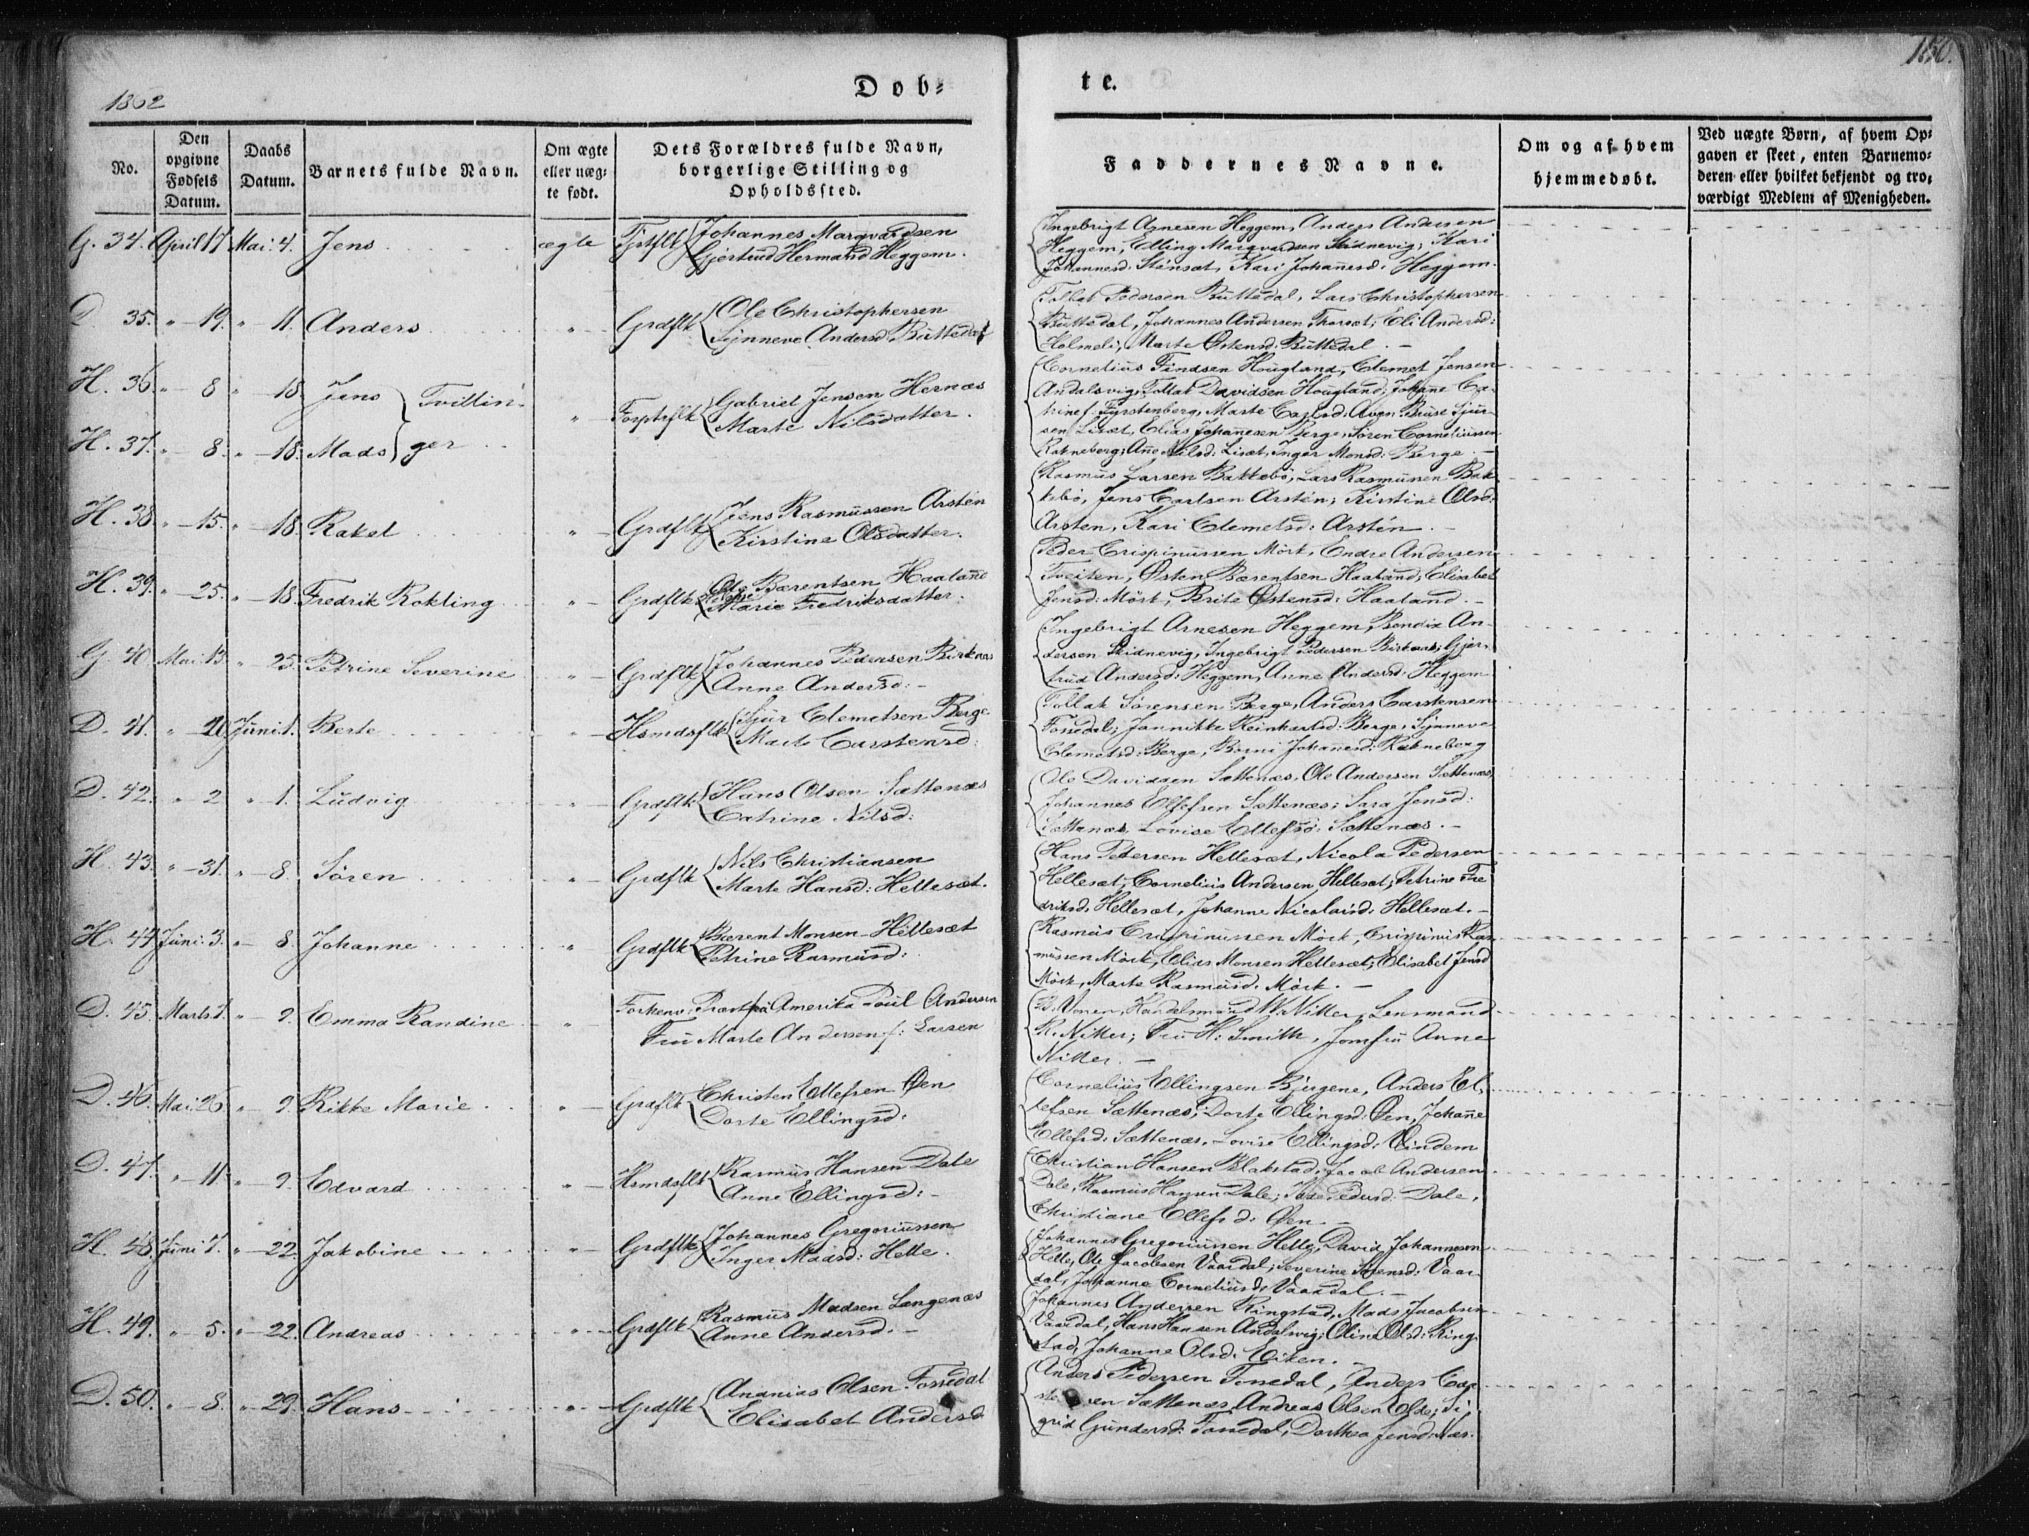 1862
Døb-
te.
150.
No.
Den opgivne Fødsels Datum.
Daabs Datum.
Barnets fulde Navn.
Om ægte eller uægte født.
Dets Forældres fulde Navn, borgerlige Stilling og Opholdssted.
Faddernes Navne.
Om og af hvem hjemmedøbt.
Ved uægte Børn, af hvem Opgaven er skeet, enten Barnemoderen eller hvilket bekjendt og troværdigt Medlem af Menigheden.
G. 34. April 17 Mai: 4. Jens ægte Johannes Marqvardsen
Gjertrud Hermand Heggem.
Ingebrigt Arnesen Heggem, Anders Andersen
Heggem, Elling Marqvardsen Skidnevig; Kari
Johannesd: Stensæt, Kari Johannesd: Heggem.
D 35. " 19. " 11. Anders " Grdflk Ole Christophersen
Synneve Andersd Buttedal
Tollak Pedersen Buttedal, Lars Christophersen
Buttedal, Johannes Andersen; Eli Andersd:
Holmeli, Marte Østensd: Buttedal. -
H. 36. " 8 " 18. Jens Tvillin-
H. 37. " 8. " 18. Mads ger
" Gabriel Jensen Hernæs
Marte Nilsdatter.
Cornelius Findsen Hougland, Clemet Jensen
Andalsvig, Tollak Davidsen Hougland, Johanne Ca-
trine f. Fyrstenberg, Marte Carlsd: Buse Sjur-
sen Lisæt, Elias Johannesen Berge, Søren Corneliussen
Rakneberg; Anne Nilsd: Lisæt, Inger Monsd: Berge. -
H. 38. " 15. " 18. Rakel " Grdflk Jens Rasmussen Arstén
Kirstine Olsdatter.
Rasmus Larsen Bakkebø, Lars Rasmussen Bak-
kebø, Jens Carlsen Arstén; Kirstine Olsd:
Arsten, Kari Clemetsd: Arstén. -
H. 39. " 25. " 18. Fredrik Rokling " Grdflk Ole Bærentsen Haaland
Marie Fredriksdatter.
Peder Crispinussen Mörk, Endre Andersen
Tveiten, Østen Bærentsen Haaland; Elisabet
Jensd: Mörk, Brite Østensd: Haaland. -
G. 40. Mai: 13. " 25. Petrine Severine " Grdflk Johannes Pedersen Birknæs
Anne Andersd: -
Ingebrigt Arnesen Heggem, Bendix An-
dersen Skidnevig, Ingebrigt Pedersen Birknæs; Gjer-
trud Andersd: Heggem, Anne Andersd: Heggem
D. 41. " 20 Juni: 1. Berte " Hsmdsflk Sjur Clemetsen Berge
Marte Carstensd:
Tollak Sørensen Berge, Anders Carstensen
Fossedal; Jannikke Reinhartsd: Berge, Synneve
Clemetsd: Berge, Borni Johannesd: Rakneberg
D. 42. " 2 " 1. Ludvig " Grdflk Hans Olsen Sættenæs
Catrine Nilsd:
Ole Davidsen Sættenæs, Ole Andersen Sættenæs,
Johannes Ellefsen Sættenæs; Sara Jensd:
Sættenæs, Lovise Ellefsd: Sættenæs. -
H. 43. " 31. " 8. Søren " Grdflk Nils Christiansen
Marte Hansd: Hellesæt.
Hans Petersen Hellesæt, Nicola Pedersen
Hellesæt, Cornelius Andersen Hellesæt; Petrine Fre-
driksd. Hellesæt, Johanne Nicolaisd. Hellesæt. -
H. 44. Juni: 3. " 8. Johanne " Grdflk Bærent Monsen Hellesæt
Petrine Rasmusd:
Rasmus Crispinussen Mörk, Crispinus Ras-
mussen Mörk, Elias Monsen Hellesæt; Elisabet Jensd
Mörk, Marte Rasmusd: Mörk. -
D. 45. Marts 7. " 9. Emma Randine " Præst fra Amerika Poul Andersen
Fru Marte Andersen f: Larsen
Handelsmand W. Nitter, Lensmand
R. Nitter; Fru H: Smith, Jomfru Anne
Nitter. -
D. 46. Mai: 26 " 9. Rikke Marie " Grdflk Christen Ellefsen Øen
Dorte Ellingsd:
Cornelius Ellingsen Bjergene, Anders El-
lefsen Sættenæs; Dorte Ellingsd: Øen, Johanne
Ellefsd: Sættenæs, Lovise Ellingsd: Vindem
D. 47. " 11. " 9. Edvard " Hsmdsflk Rasmus Hansen Dale
Anne Ellingsd: -
Christian Hansen Blakstad, Jacob Andersen
Dale, Rasmus Hansen Dale; Pedersd: Dale,
Christiane Ellefsd: Øen. -
H. 48. Juni 7. " 22. Jakobine " Grdflk Johannes Gregoriussen
Inger Madsd: Helle.
Johannes Gregoriussen Helle, David Johannesen
Helle, Ole Jacobsen Vaardal; Severine Sørensd: Vaar-
dal, Johanne Corneliusd: Vaardal. -
H. 49. " 5. " 22. Andreas " Grdflk Rasmus Madsen Langenæs
Anne Andersd. -
Johannes Andersen Ringstad, Mads Jacobsen
Vaardal, Hans Hansen Andalsvig; Olina Olsd: Ring-
stad, Johanne Olsd: Eiken. -
D. 50. " 8. " 29. Hans " Grdflk Ananias Olsen Fossedal
Elisabet Andersd
Anders Pedersen Fossedal, Anders Car-
sen Sættenæs, Andreas Olsen; Si-
grid Gundersd: Fossedal, Dorthea Jensd: